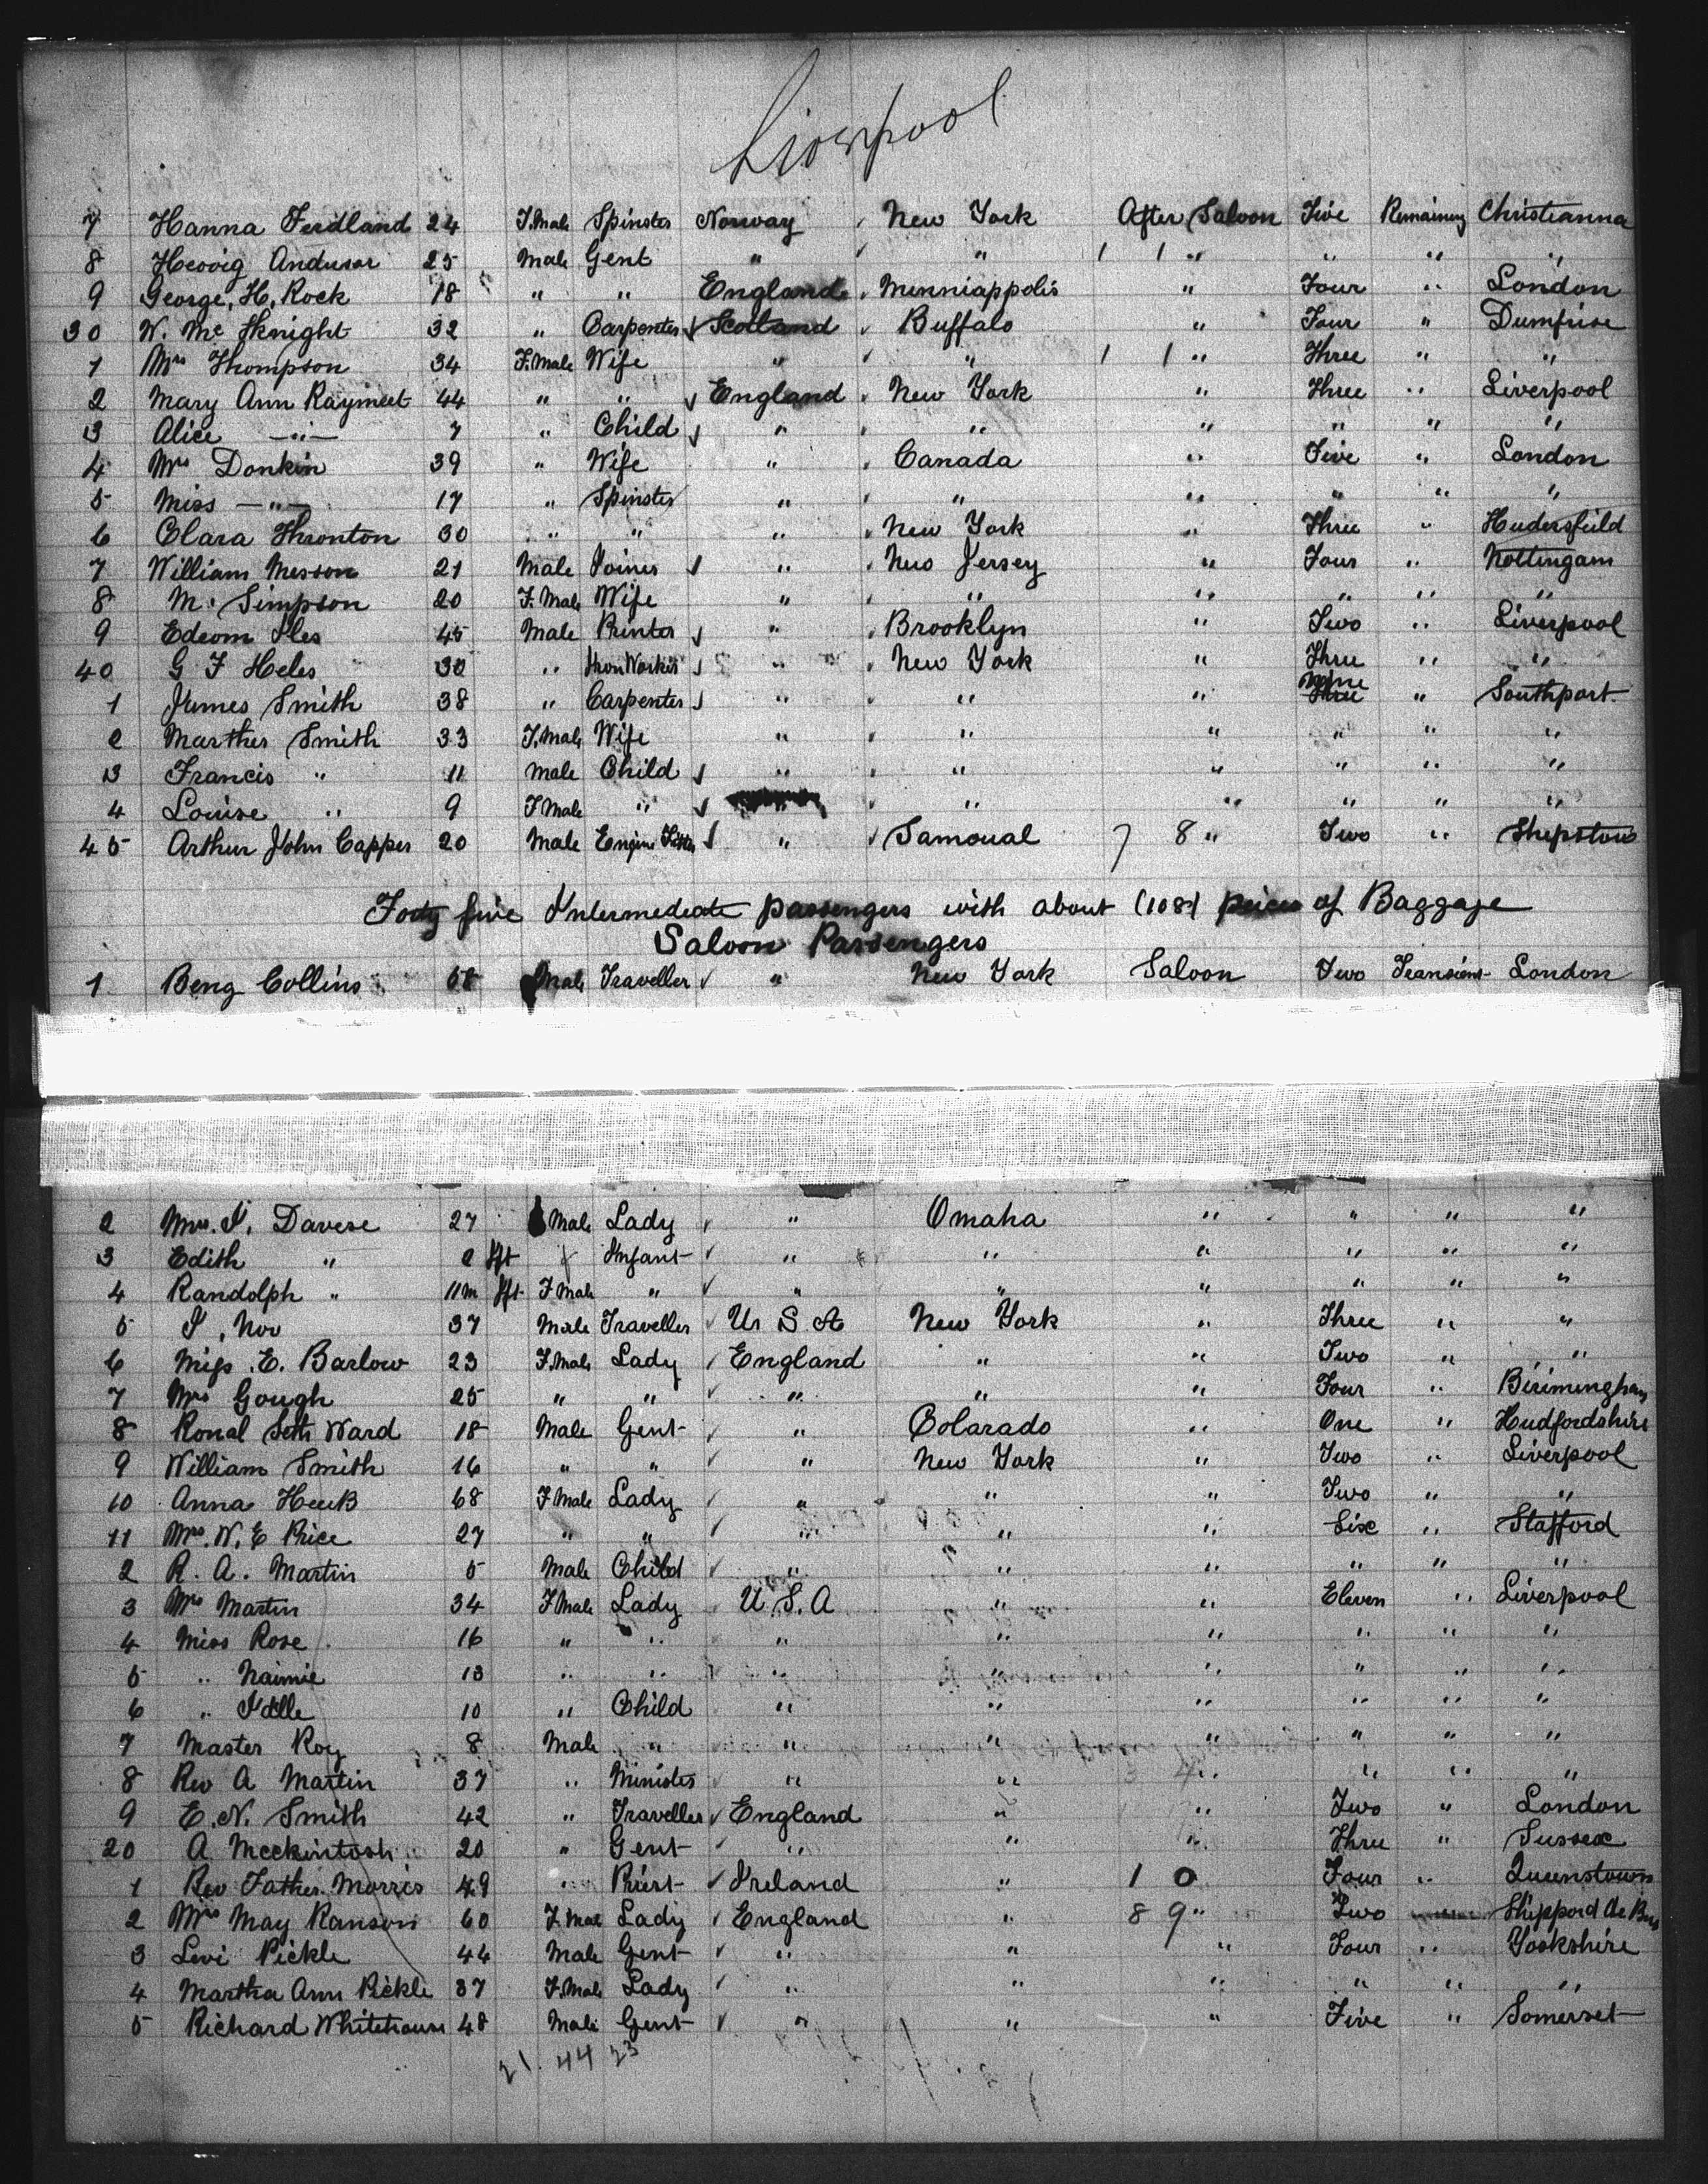 Liverpool
7 Hanna Ferdland 24 F.Male Spinster Norway New York After Saloon Five Remaining Christianna
8 Hedvig Andusar 25 Male Gent " " 1 1 " " " "
9 George, H, Rock 18 " " England Minniappolis " Four " London
30 W. Mc Knight 32 " Carpenter Scotland Buffalo " Four " Dumfrise
1 Mrs Thompson 34 F.Male Wife " " 1 1 " Three " "
2 Mary Ann Rayment 44 " " England New York " Three " Liverpool
3 Alice —"— 7 " Child " " " " " "
4 Mrs Donkin 39 " Wife " Canada " Five " London
5 Miss —"— 17 " Spinster " " " " " "
6 Clara Thronton 30 " " " New York " Three " Hudersfield
7 William Messon 21 Male Joiner " New Jersey " Four " Nottingam
8 M. Simpson 20 F.Male Wife " " " " " "
9 Edeom Iles 45 Male Printer " Brooklyn " Two " Liverpool
40 G F Heles 30 " Iron Worker " New York " Three " "
1 James Smith 38 " Carpenter " " " Three " Southport
2 Marther Smith 33 F.Male Wife " " " " " "
3 Francis " 11 Male Child " " " " " "
4 Louise " 9 F Male " " " " " "
45 Arthur John Capper 20 Male Engine Fitter " Samoual 7 8 " Two " Shepstow
Forty five Intermediate passengers with about (108) peices of Baggage
Saloon Passengers
1 Beng Collins 58 Male Traveller " New York Saloon Two Transient London
2 Mrs. I. Davese 27 Male Lady " Omaha " " " "
3 Edith " 2 Infant " " " " " "
4 Randolph " 11m F Male " " " " " " "
5 I, Nov 37 Male Traveller U. S. A New York " Three " "
6 Miss. E. Barlow 23 F.Male Lady England " " Two " "
7 Mrs Gough 25 " " " " " Four " Birimingham
8 Ronal Seth Ward 18 Male Gent " Colarado " One " Hudfordshire
9 William Smith 16 " " " New York " Two " Liverpool
10 Anna 68 F Male Lady " " " Two " "
11 Mrs. W. E Price 27 " " " " " Six " Stafford
2 R. A. Martin 5 Male Child " " " " " "
3 Mrs Martin 34 F Male Lady U. S. A " " Eleven " Liverpool
4 Miss Rose 16 " " " " " " " "
5 " Naimie 13 " " " " " " " "
6 " Idlle 10 " Child " " " " " "
7 Master Roy 8 Male " " " " " " "
8 Rev A Martin 37 " Minister " " " " " "
9 E. N. Smith 42 " Traveller England " " Two " London
20 A Mcckintosh 20 " Gent " " " Three " Sussex
1 Rev Father Morris 49 " Priest Ireland " 1 0 Four " Queenstown
2 Mrs May Ranson 60 F.Male Lady England " 8 9 " Two
3 Levi Pickle 44 Male Gent " " " Four " Yorkshire
4 Martha Ann Pickle 37 F.Male Lady " " " " " "
5 Richard Whitehouse 48 Male Gent " " " Five " Somerset
21 44 23